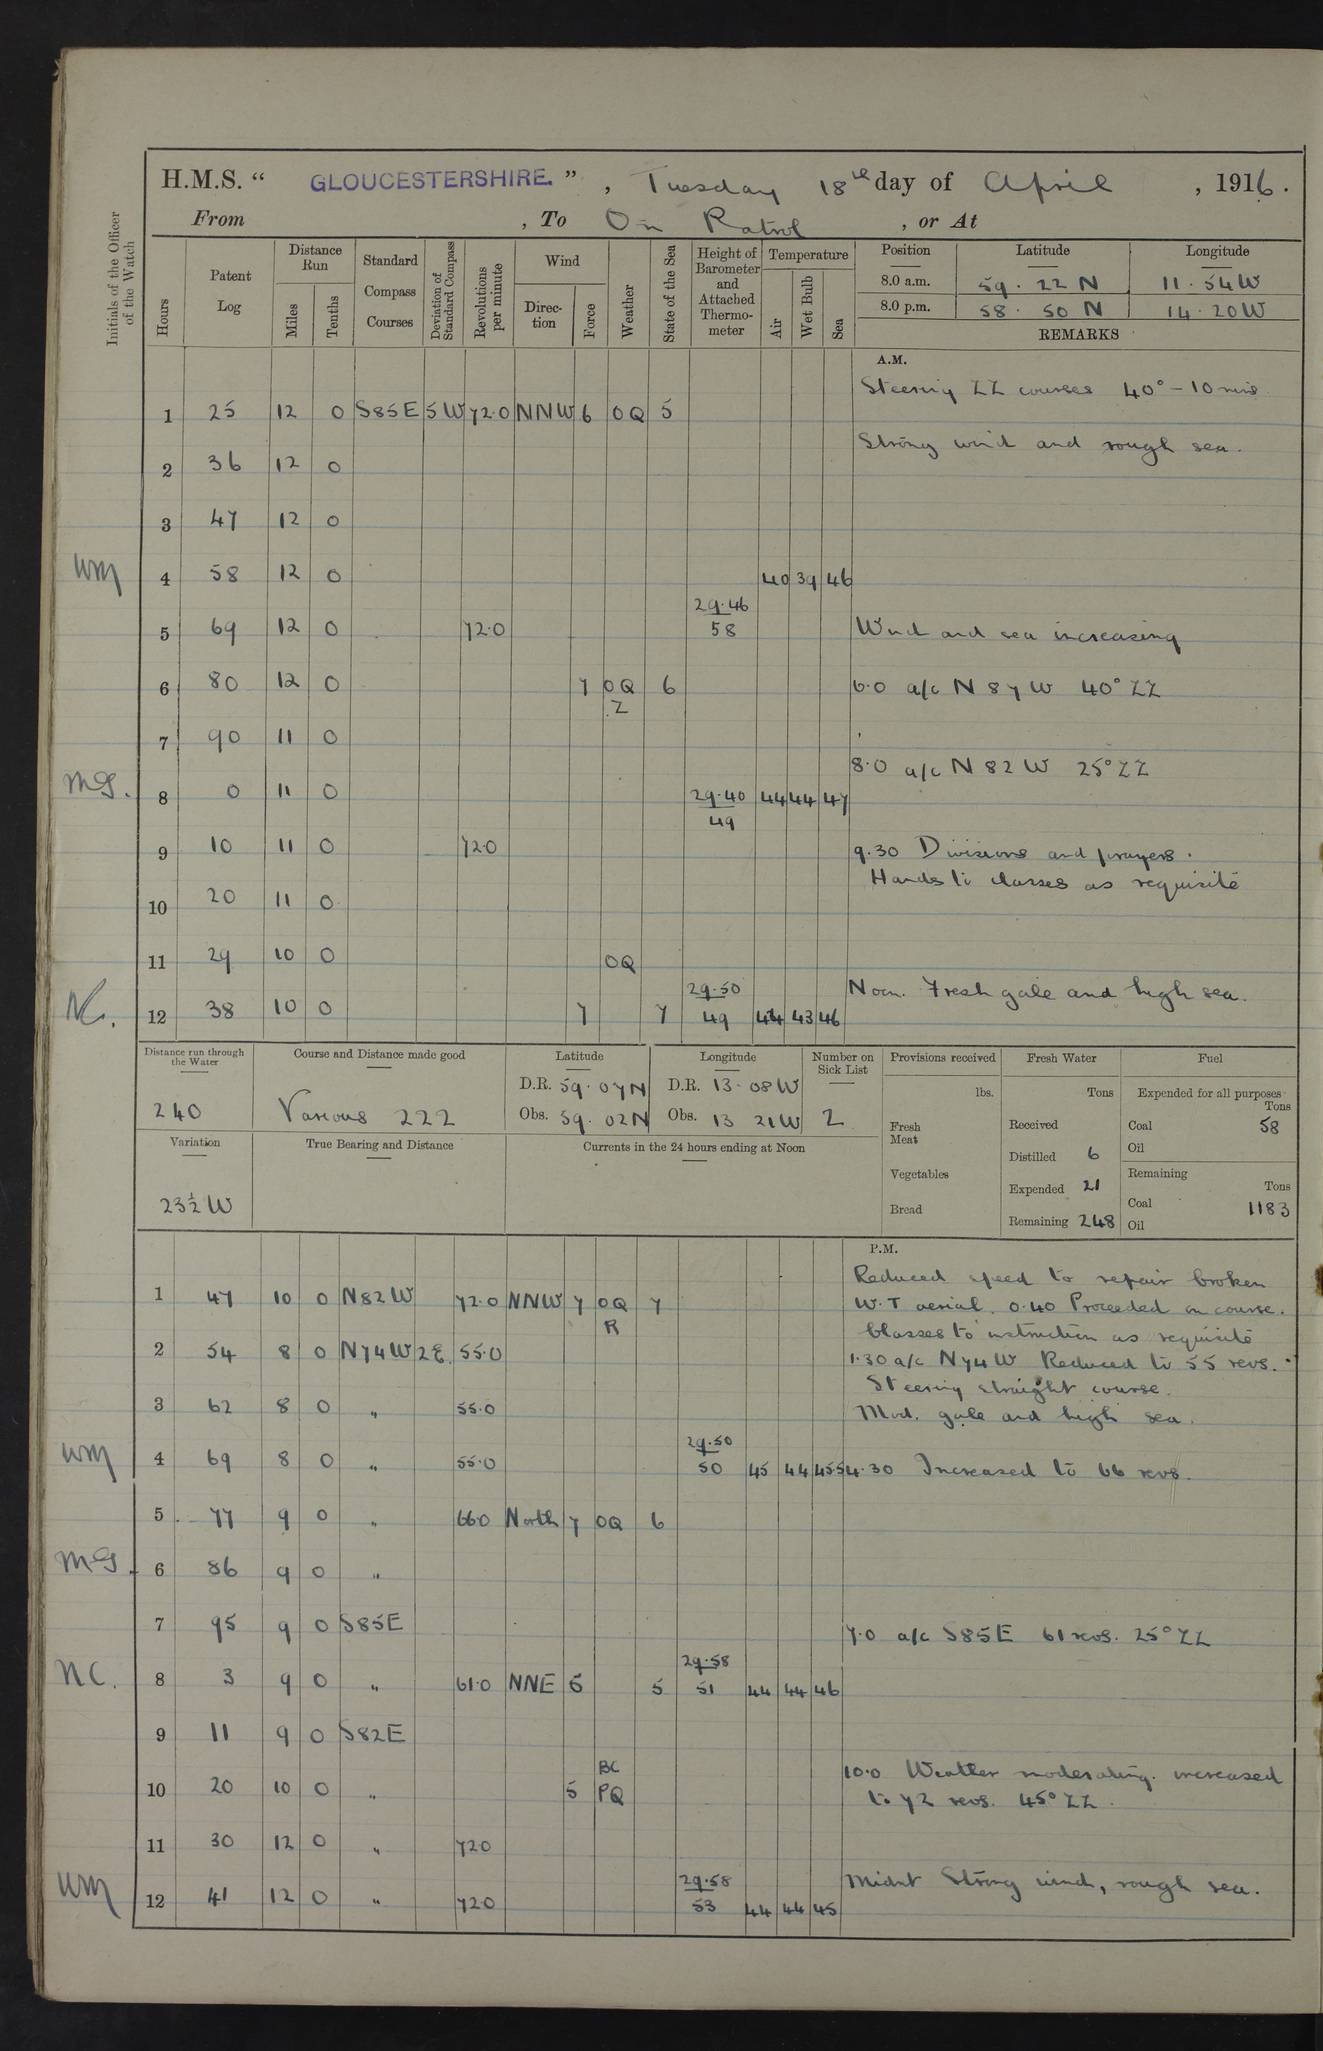 H.M.S. “ GLOUCESTERSHIRE. ” , Tuesday 18th day of April , 1916.
From , To On Patrol , or At
Initials of the Officer of the Watch
Hours
Patent Log
Distance Run
Miles
Tenths
Standard Compass Courses
Deviation of Standard Compass
Revolutions per minute
Wind
Direction
Force
Weather
State of the Sea
Height of Barometer and Attached Thermometer
Temperature
Air
Wet Bulb
Sea
Position Latitude Longitude
8.0 a.m. 59. 22 N 11. 54 W
8.0 p.m. 58. 50 N 14. 20 W
REMARKS
A.M.
Steering ZZ courses 40° – 10 mins
1 25 12 0 S85E 5W 72.0 NNW 6 OQ 5
Strong wind and rough sea.
2 36 12 0
3 47 12 0
WM 4 58 12 0 40 39 46
29.46
5 69 12 0 72.0 58 Wind and sea increasing
6 80 12 0 7 OQ 6 6.0 a/c N 87 W 40° ZZ
Z
7 90 11 0
8.0 a/c N 82 W 25° ZZ
MG. 8 0 11 0 29.40 44 44 47
49
9 10 11 0 72.0 9.30 Divisions and prayers.
Hands to classes as requisite
10 20 11 0
11 29 10 0 OQ
29.50 Noon. Fresh gale and high sea.
NC. 12 38 10 0 7 7 49 44 43 46
Distance run through the Water
240
Course and Distance made good
Various 222
Latitude
D.R. 59. 07 N
Obs. 59. 02 N
Longitude
D.R. 13. 08 W
Obs. 13 21 W
Number on Sick List
2
Provisions received
lbs.
Fresh Meat
Vegetables
Bread
Fresh Water
Tons
Received
Distilled 6
Expended 21
Remaining 248
Fuel
Expended for all purposes
Tons
Coal 58
Oil
Remaining
Tons
Coal 1183
Oil
Variation
23½ W
True Bearing and Distance
Currents in the 24 hours ending at Noon
P.M.
Reduced speed to repair broken
1 47 10 0 N82W 72.0 NNW 7 OQ 7 W.T aerial. 0.40 Proceeded on course.
R Classes to instruction as requisite
2 54 8 0 N74W 2E. 55.0 1.30 a/c N74W Reduced to 55 revs.
Steering straight course.
3 62 8 0 " 55.0 Mod. gale and high sea.
29.50
WM 4 69 8 0 " 55.0 50 45 44 45.5 4.30 Increased to 66 revs.
5 77 9 0 " 66.0 North 7 OQ 6
MG. 6 86 9 0 "
7 95 9 0 S85E 7.0 a/c S85E 61 revs. 25° ZZ
29.58
NC. 8 3 9 0 " 61.0 NNE 6 5 51 44 44 46
9 11 9 0 S82E
BC 10.0 Weather moderating. increased
10 20 10 0 " 5 PQ to 72 revs. 45° ZZ.
11 30 12 0 " 72.0
29.58 Midnt Strong wind, rough sea.
WM 12 41 12 0 " 72.0 53 44 44 45